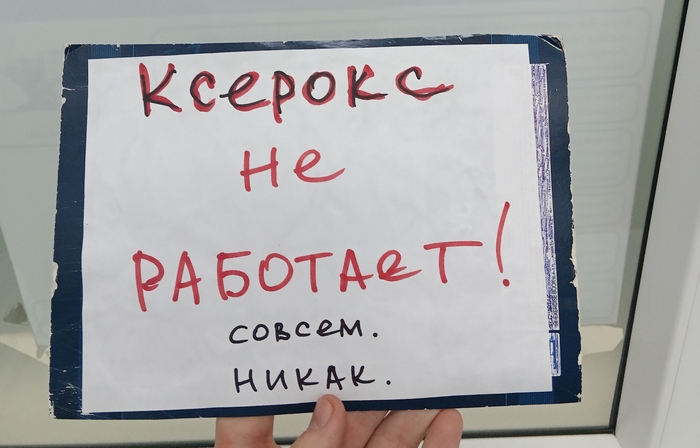 Ксерокс
не
РАБОТАеТ!
совсем.
никак.